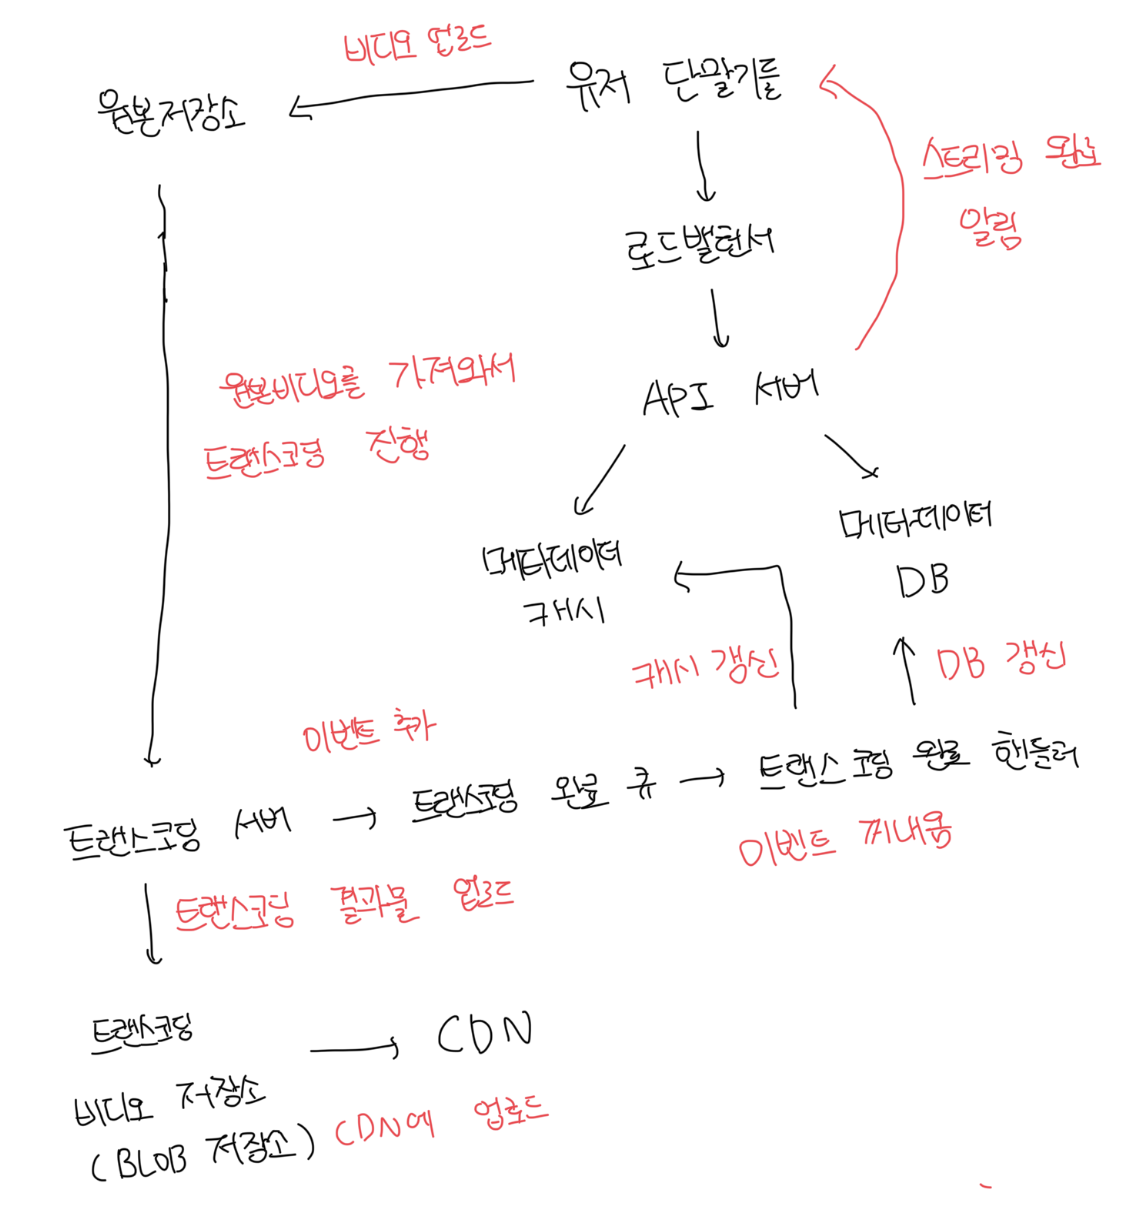 비디오 업로드
원본저장소
유저 단말기들
스트리밍 완료
알림
로드밸런서
원본비디오를 가져와서
트랜스코딩 진행
API 서버
메타데이터
캐시
메타데이터
DB
캐시 갱신
DB 갱신
이벤트 추가
트랜스코딩 서버
트랜스코딩 완료 큐
트랜스코딩 완료 핸들러
이벤트 꺼내옴
트랜스코딩 결과물 업로드
트랜스코딩
비디오 저장소
(BLOB 저장소)
CDN
CDN에 업로드